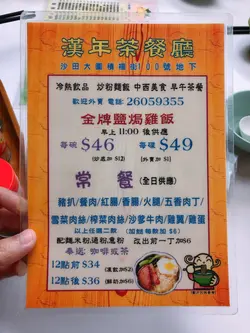 漢年茶餐廳
沙田大圍積福街100號地下
冷熱飲品 炒粉麵飯 中西美食 早午茶餐
歡迎外賣 電話: 26059355
金牌鹽焗雞飯
早上11:00後供應
每碗 $46 每碟 $49
(外賣加$1)
常餐(全日供應)
豬扒/餐肉/紅腸/香腸/火腿/五香肉丁/
雪菜肉絲/榨菜肉絲/沙爹牛肉/雞翼/雞蛋
以上任選二款 (加餸每款加$6)
配麵米粉通粉意粉 改出前一丁加$6
奉送 咖啡或茶
12點前 $34
12點後 $36